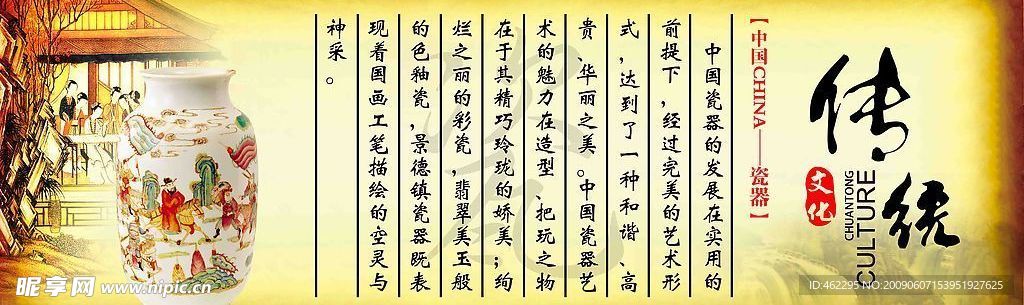 传统
文化
CHUANTONG
CULTURE
【中国CHINA——瓷器】
中国瓷器的发展在实用的
前提下,经过完美的艺术形
式,达到了一种和谐、高
贵、华丽之美。中国瓷器艺
术的魅力在造型、把玩之物
在于其精巧玲珑的娇美;绚
烂之丽的彩瓷,翡翠美玉般
的色釉瓷,景德镇瓷器既表
现着国画工笔描绘的空灵与
神采。
昵享网 www.nipic.cn
ID:462295 NO:20090607153951927625